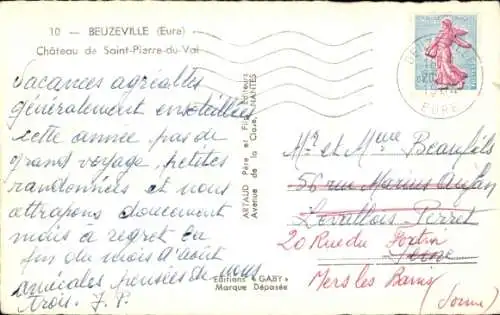 10 — BEUZEVILLE (Eure)
Château de Saint-Pierre-du-Val
Vacances agréables
généralement ensoleillées
cette année pas de
grand voyage, petites
randonnées et nous
attrapons doucement
mais à regret la
fin du mois d'août
amicales pensées de nous
trois. J. P.
ARTAUD Père et Fils, Editeurs
Avenue de la Close, NANTES
Editions "GABY"
Marque Déposée
EURE
Mr et Mme Beaufils
56 rue Marius Aufan
Levallois-Perret
Seine
20 Rue du Fortin
Mers les Bains
(Somme)